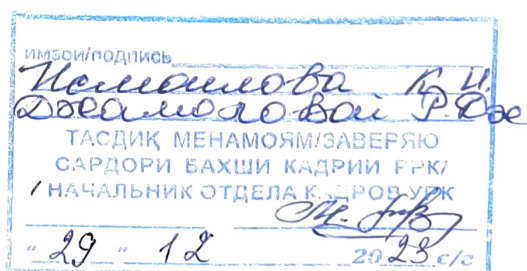 ИМЗОИ/ПОДПИСЬ
Исмаилова К. И.
Джамоловой Р. Дж
ТАСДИҚ МЕНАМОЯМ/ЗАВЕРЯЮ
САРДОРИ БАХШИ КАДРИИ РРК/
НАЧАЛЬНИК ОТДЕЛА КАДРОВ УРК
"29" 12 2023 с/г